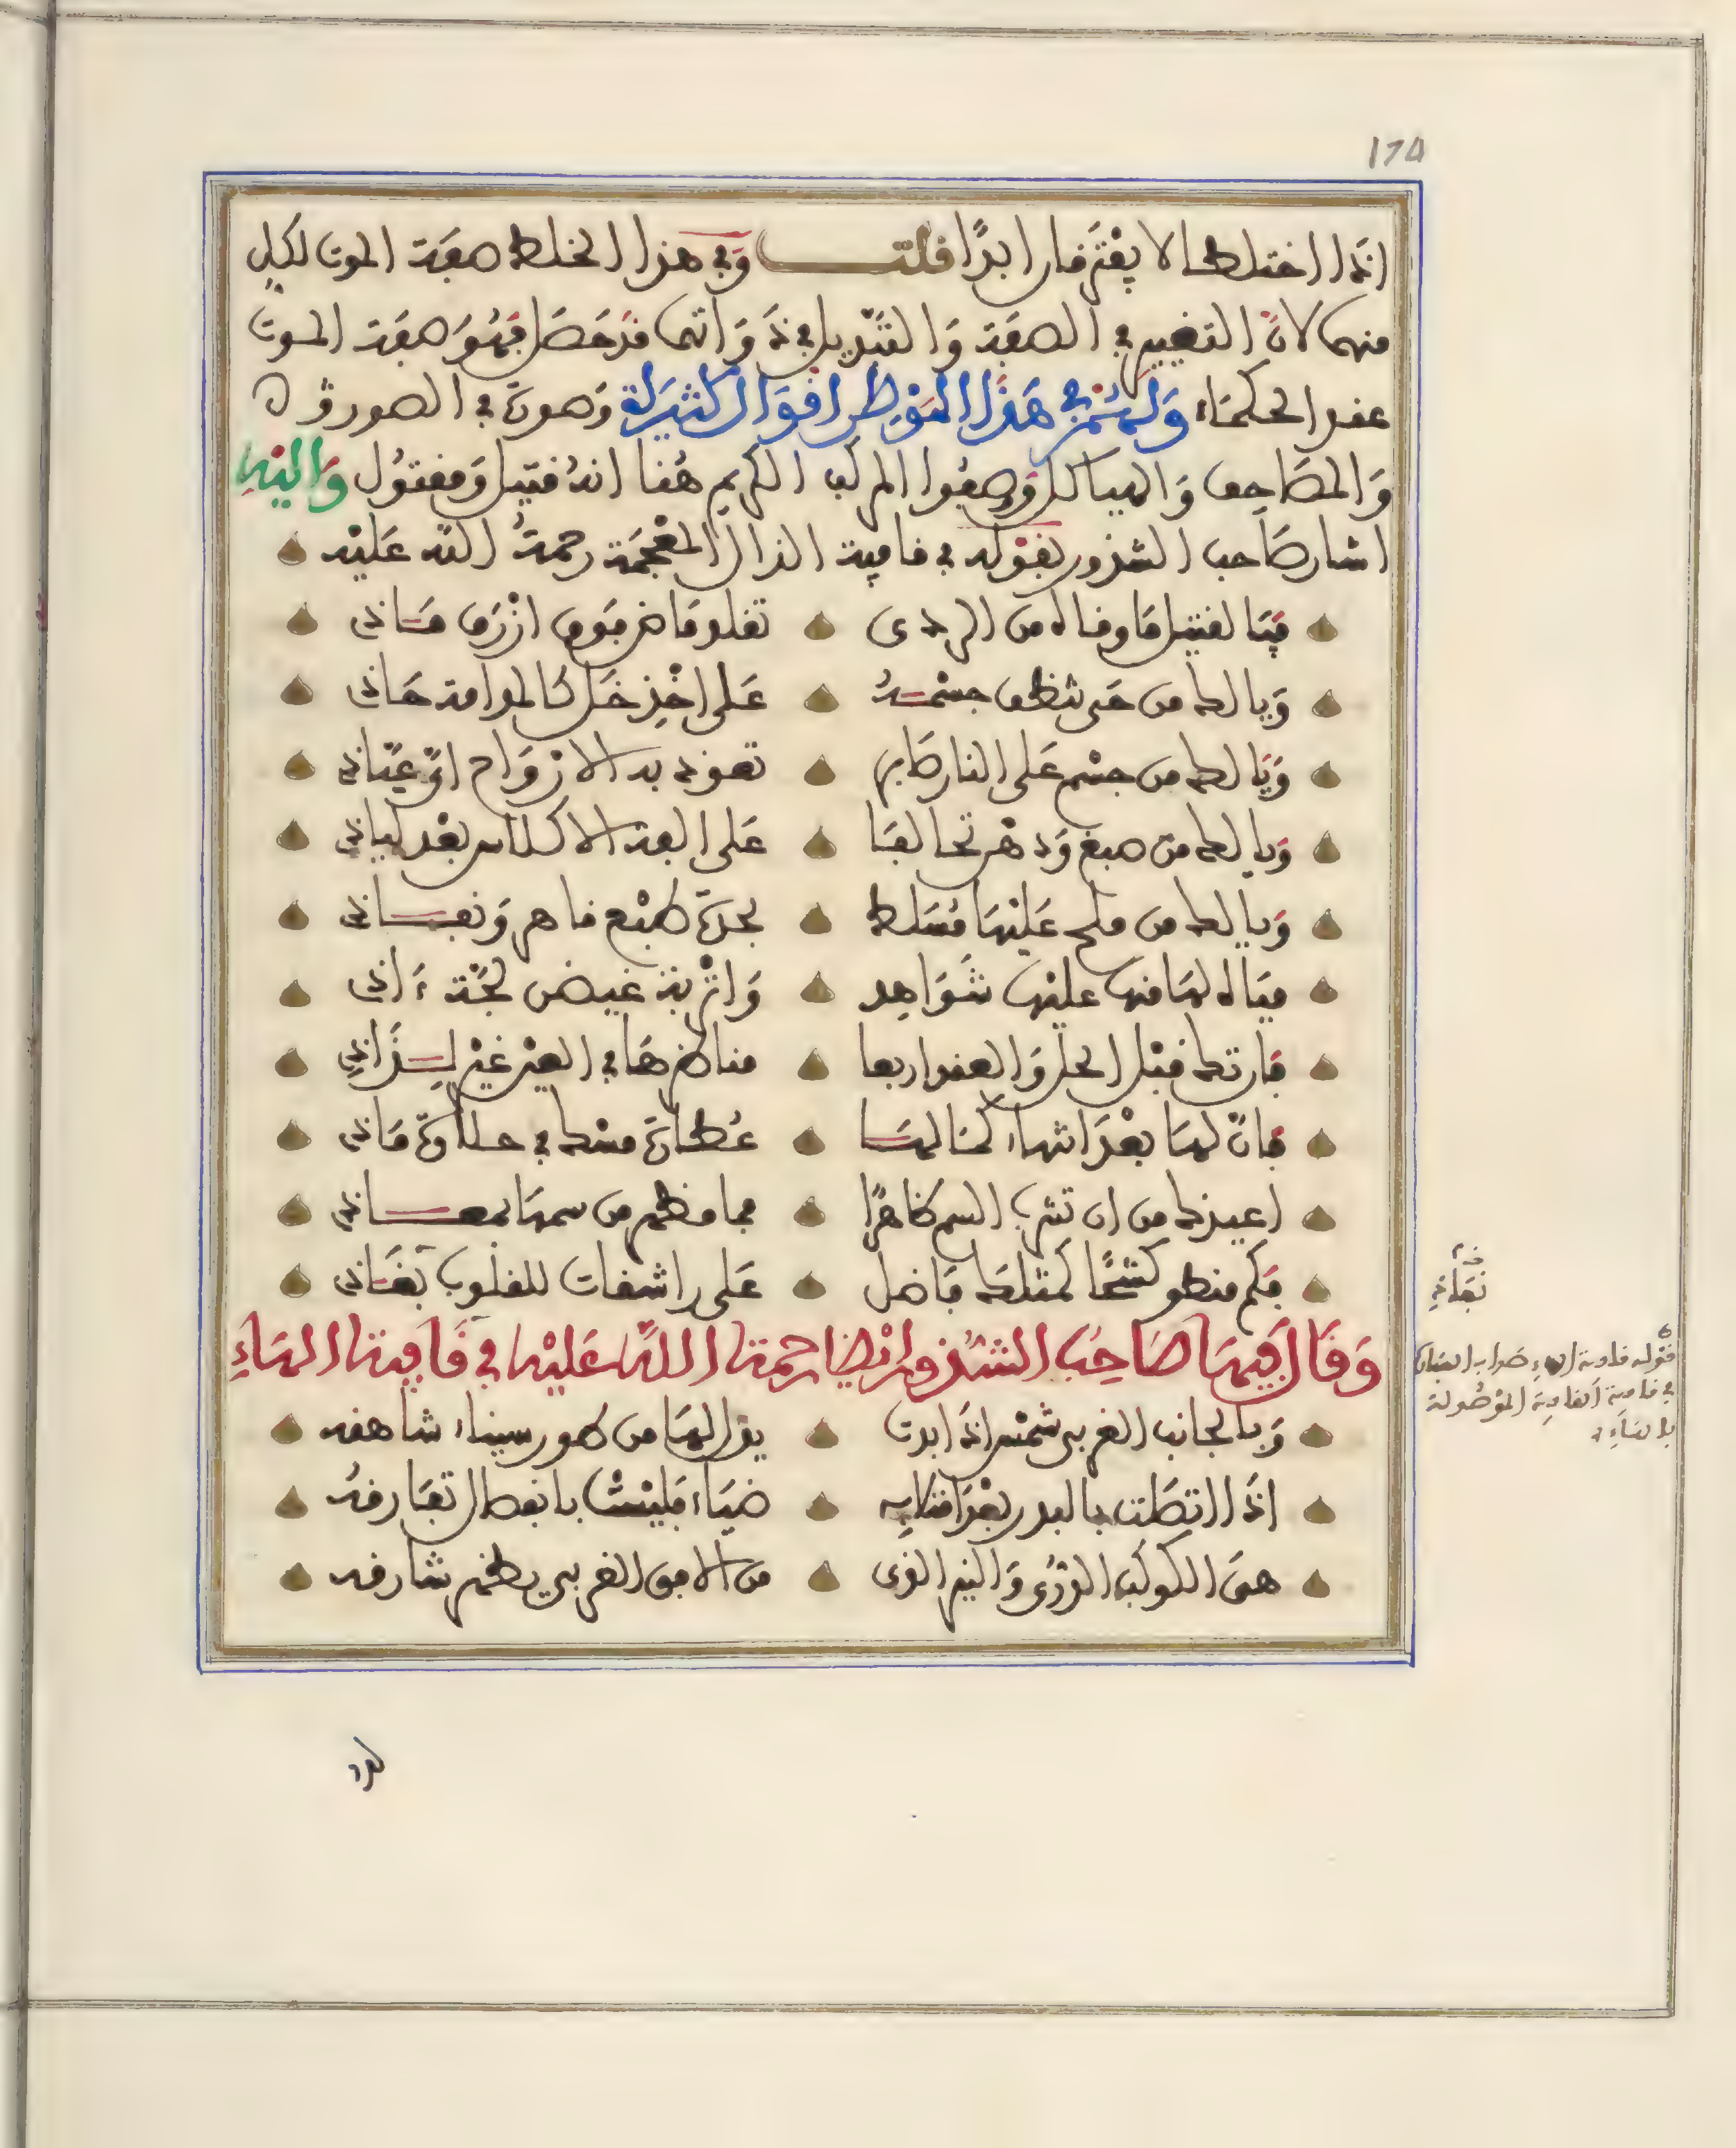 ١٧٥
اذا اختلطا لا يفترقان ابدًا قلت وفي هذا الخلط صفة الموت لكلٍ
منهما لانّ التغيير في الصفة والتبديل في ذواتهما قد حصل فهو صفة الموت
عند الحكماء ولهم في هذا الموطن اقوال كثيرة وصوّة في الصور و
والمصاحف والهياكل ووصفوا المركب الكريم هنا انه قتيل ومقتول واليه
اشار صاحب الشذور بقوله في قافية الذال المعجمة رحمة الله عليه
فيا لقتيل ما وقاه من الردى تقلد ماض فوق ازرق ماذي
ويا لك من حي تشظف جسمه على اخذ خل كالمدامة حاذي
ويا لك من جسم على النار صابر تعوذ به الارواح اي عياذ
ويا لك من صبغ ودهن تحالفا على الفة الاكلاس بعد لياذ
ويا لك من ملح عليها مسلط بحدة طبع قاهر ونفاذ
مياه لها منها عليها شواهد واتربة غيض لجة اذي
فارتك قبل الحل والعقد اربعا مناظرها في العين غير لذاذ
فان لها بعد انتهاء كمالها عطارة مسك في حلاوة ماذي
اعيذك من ان تشرب السم ظاهرًا فيا فظهم من سمها بمعاذ
فكم منطو كشحًا كمثلك فاضل على راشفات للقلوب نفاذ
وقال فيها صاحب الشذور ايضا رحمة الله عليه في قافية الهاء
وبالجانب الغربي شمس اذا بدت يذر لها من طور سيناء شاهقه
اذا اتصلت بالبدر بعد امتلايه ضياء فليست بانفصال تفارقه
هي الكوكب الدري والنير الذي من الافق الغربي يطلع شارقه
نفاذ
قوله قافية الهاء صوابه
في قافية القاف الموصولة
بالهاء